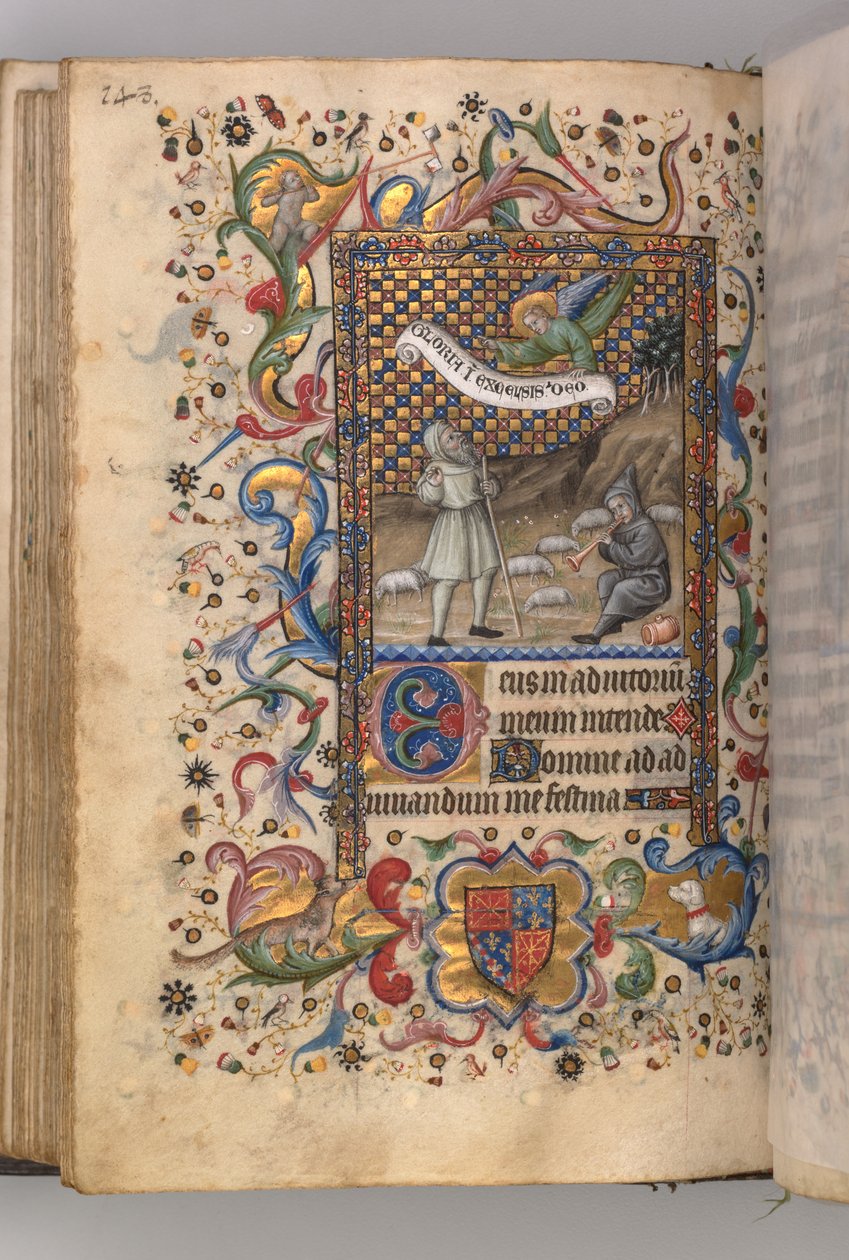 143.
GLORIA. I EXCELSIS. DEO.
Deus in adiutoriū
meum intende
Domine ad ad
iuuandum me festina